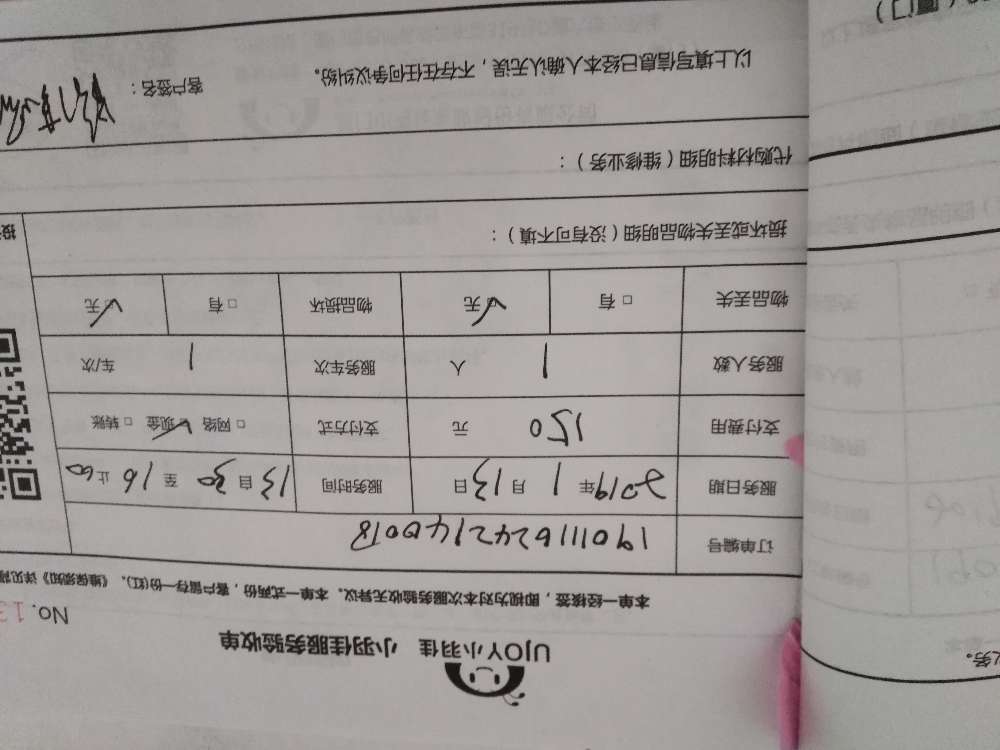 UJOY小羽佳 小羽佳服务验收单
No. 13
本单一经核签，即视为对本次服务验收无异议。本单一式两份，客户留存一份(红)。《维保须知》详见
订单编号 1901116242140018
服务日期 2019年 1 月 13 日 服务时间 13 自 30 至 16 止 00
支付费用 150 元 支付方式 □ 网络 ☑ 现金 □ 转账
服务人数 1 人 服务车次 1 车/次
物品丢失 □ 有 ☑ 无 物品损坏 □ 有 ☑ 无
损坏或丢失物品明细（没有可不填）：
代购材料明细（维修业务）：
以上填写信息已经本人确认无误，不存在任何争议纠纷。 客户签名：